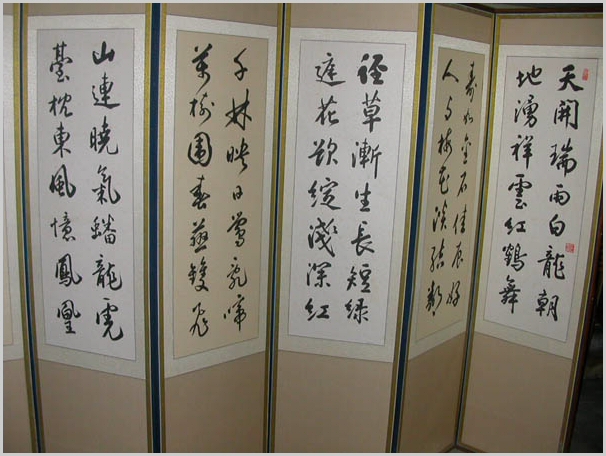 天開瑞雨白龍朝
地湧祥雲紅鶴舞
壽如金石佳且好
人与梅花淡結鄰
徑草漸生長短綠
庭花欲綻淺深紅
千林映日鶯亂啼
萬樹圍春燕雙飛
山連曉氣蟠龍虎
臺枕東風憶鳳凰